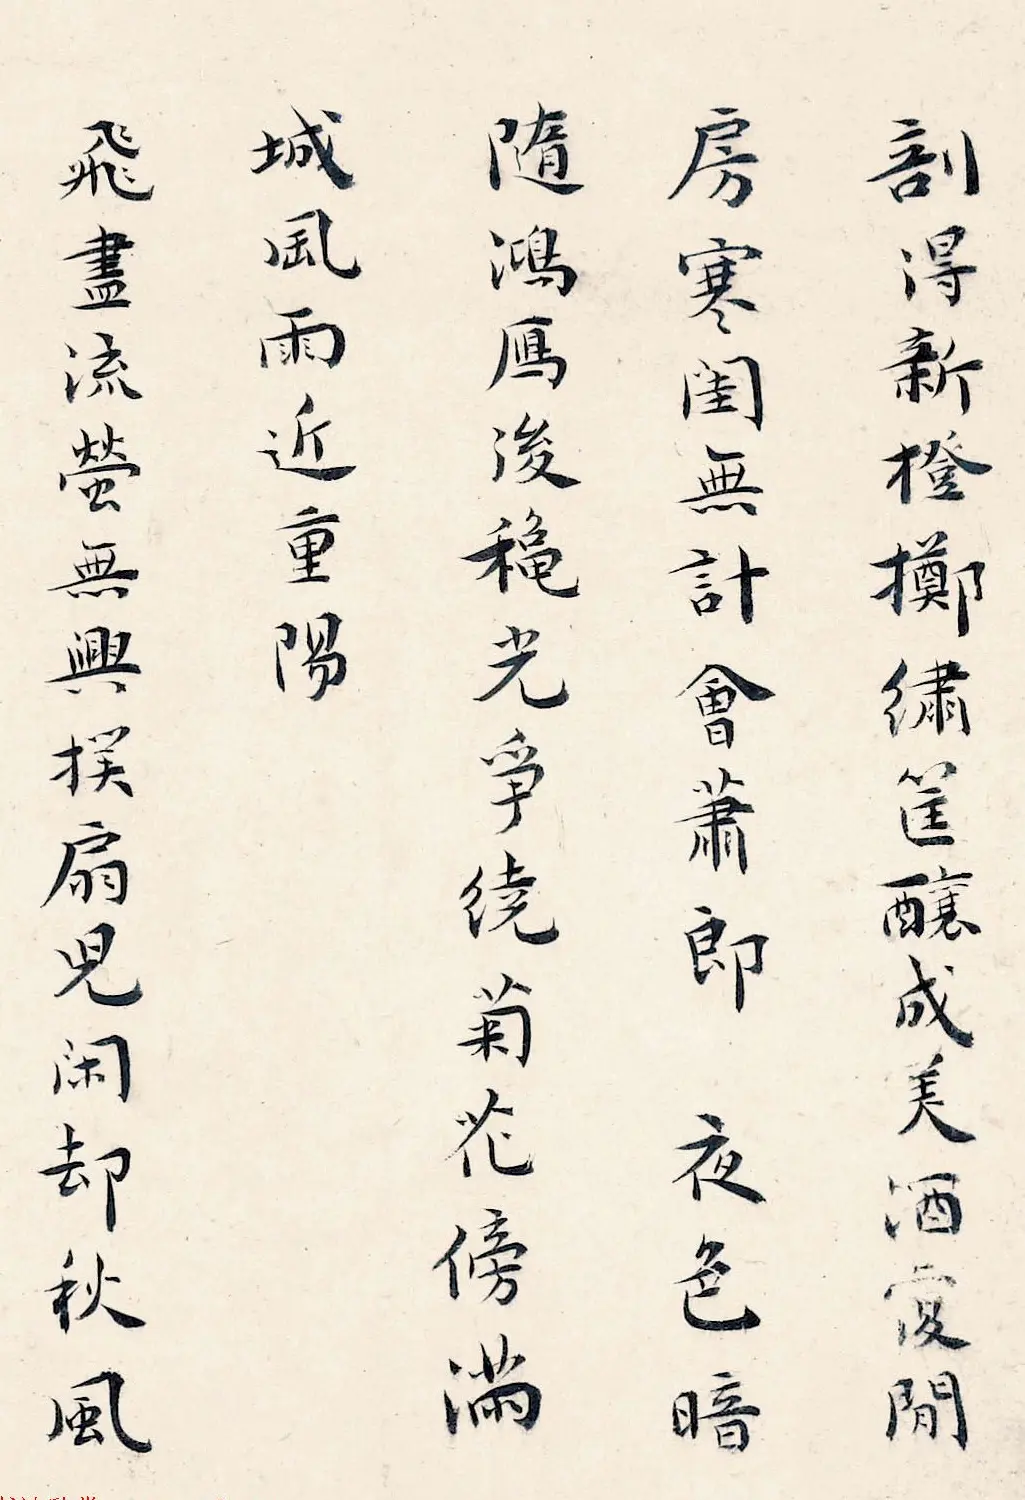 剖得新橙擲繡筐釀成美酒復閒
房寒閨無計會蕭郎 夜色暗
隨鴻雁後穐光爭繞菊花傍滿
城風雨近重陽
飛盡流螢無興撲扇兒閑却秋風